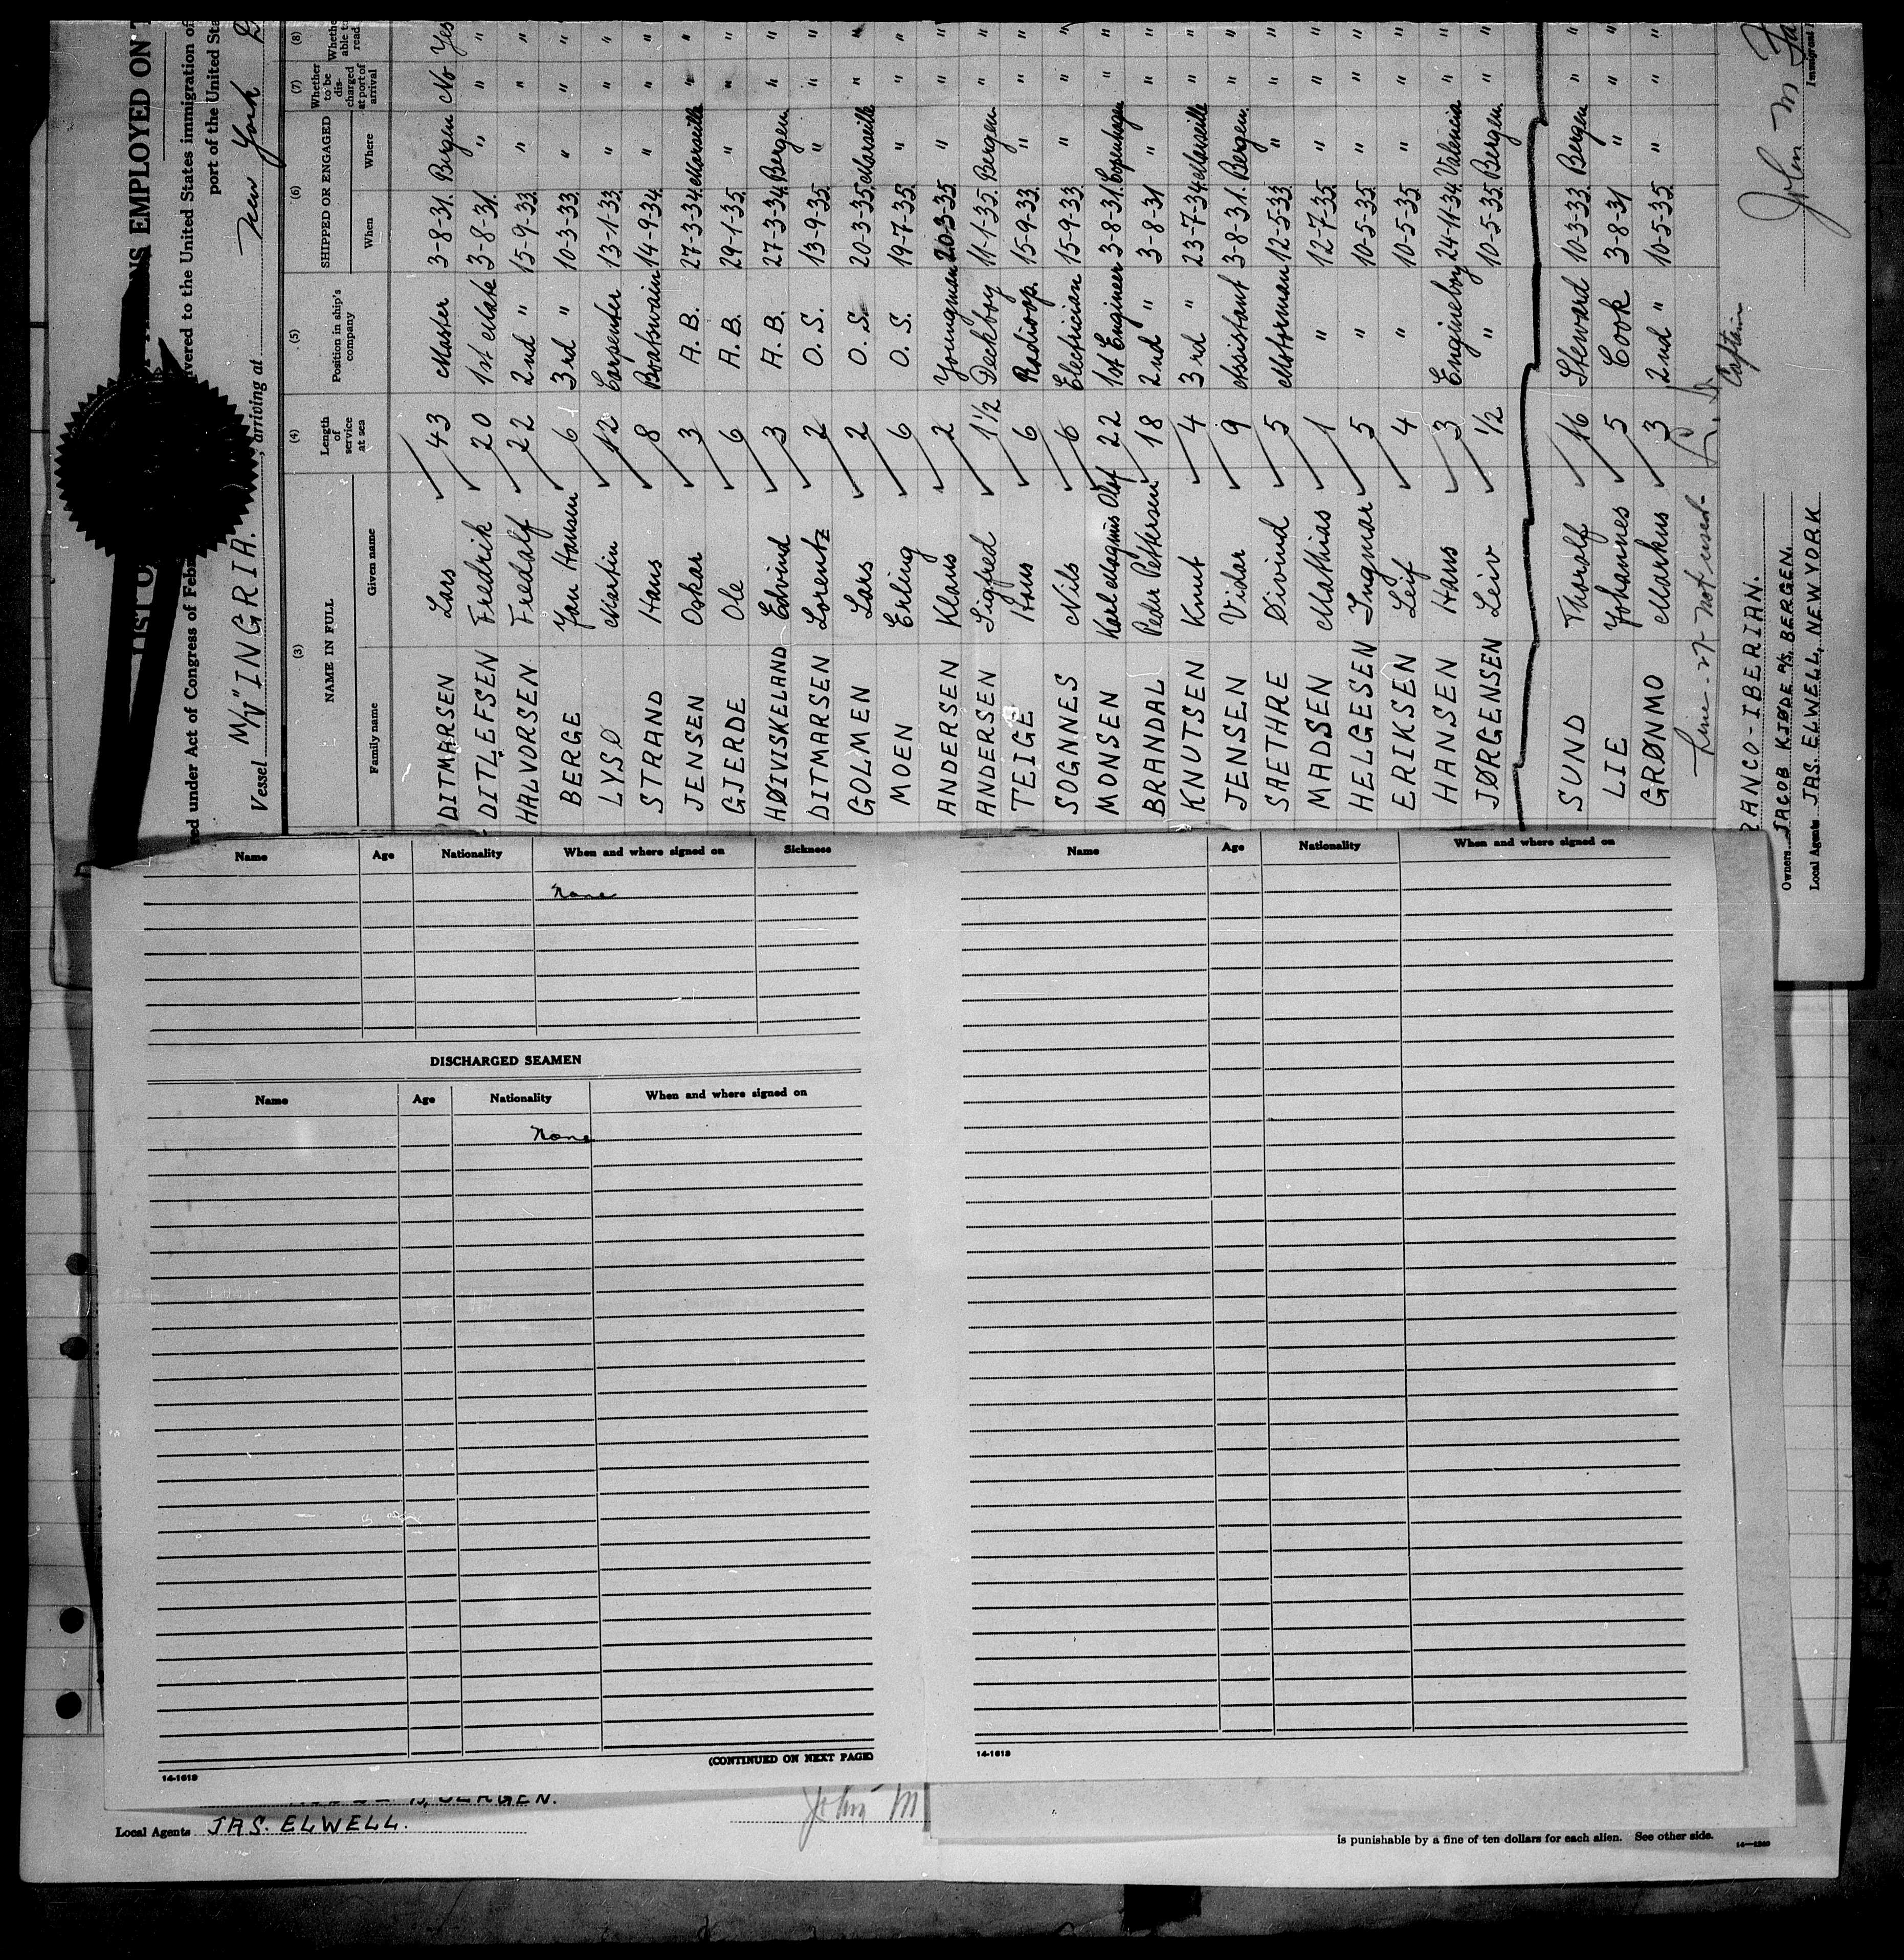 LIST O
NS EMPLOYED ON T
ed under Act of Congress of Feb
ivered to the United States immigration of
port of the United Sta
Vessel M/V "INGRIA." , arriving at New York
(3) (4) (5) (6) (7) (8)
NAME IN FULL Length of service at sea Position in ship's company SHIPPED OR ENGAGED Whether to be discharged at port of arrival Whethe able to read
Family name Given name When Where
DITMARSEN Lars 43 Master 3-8-31. Bergen No Yes
DITLEFSEN Fredrik 20 1st Mate 3-8-31. " " "
HALVORSEN Fredalf 22 2nd " 15-9-33. " " "
BERGE Jan Hansen 6 3rd " 10-3-33. " " "
LYSO Martin 12 Carpenter 13-1-33. " " "
STRAND Hans 8 Boatswain 14-9-34. " " "
JENSEN Oskar 3 A. B. 27-3-34. Marseille " "
GJERDE Ole 6 A. B. 29-1-35. " " "
HØIVISKELAND Edvind 3 A. B. 27-3-34. Bergen " "
DITMARSEN Lorentz 2 O. S. 13-9-35. " " "
GOLMEN Lars 2 O. S. 20-3-35. Marseille " "
MOEN Erling 6 O. S. 19-7-35. " " "
ANDERSEN Klaus 2 Youngman 20-3-35. " " "
ANDERSEN Sigfred 1 1/2 Deckboy 11-1-35. Bergen " "
TEIGE Hans 6 Radioop. 15-9-33. " " "
SOGNNES Nils 6 Electrician 15-9-33. " " "
MONSEN Karl Magnus Olaf 22 1st Engineer 3-8-31. Copenhagen " "
BRANDAL Peder Pettersen 18 2nd " 3-8-31 " " "
KNUTSEN Knut 4 3rd " 23-7-34. Marseille " "
JENSEN Vidar 9 Assistant 3-8-31. Bergen. " "
SAETHRE Oivind 5 Motorman 12-5-33 " " "
MADSEN Mathias 1 " 12-7-35. " " "
HELGESEN Ingmar 5 " 10-5-35. " " "
ERIKSEN Leif 4 " 10-5-35. " " "
HANSEN Hans 3 Engineboy 24-11-34. Valencia " "
JØRGENSEN Leiv 1/2 " 10-5-35. Bergen. " "
SUND Thoralf 16 Steward 10-3-33. Bergen " "
LIE Johannes 5 Cook 3-8-31 " " "
GRØNMO Markus 3 2nd " 10-5-35 " " "
Line 27 Not used.
Captain
RANCO-IBERIAN.
John M
Owners JACOB KJØDE A/S, BERGEN.
Local Agents JAS. ELWELL, NEW YORK
Immigrant
Name Age Nationality When and where signed on Sickness
None
DISCHARGED SEAMEN
Name Age Nationality When and where signed on
None
(CONTINUED ON NEXT PAGE)
14-1613
Name Age Nationality When and where signed on
14-1613
BERGEN.
Local Agents JAS. ELWELL.
John M
is punishable by a fine of ten dollars for each alien. See other side.